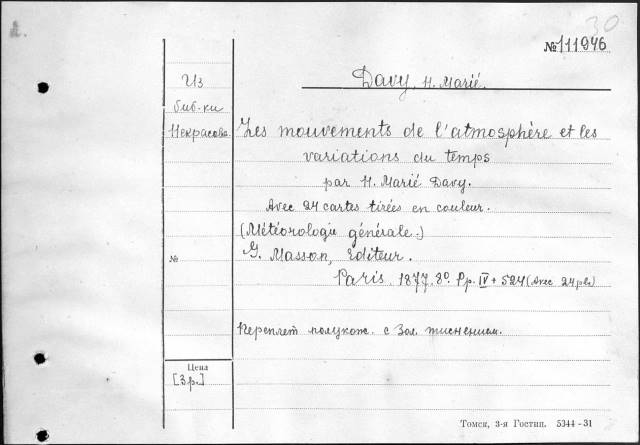 2.
30
№ 111946
Davy, H. Marié.
Из
биб-ки
Некрасова
Les mouvements de l'atmosphère et les
variations du temps
par H. Marié Davy.
Avec 24 cartes tirées en couleur.
(Météorologie générale.)
G. Masson, Editeur.
№
Paris. 1877. 8°. Pp. IV + 524 (Avec 24 pl.)
Переплет полукож. с Зол. тиснением.
Цена
[3 р.]
Томск, 3-я Гостип. 5344-31